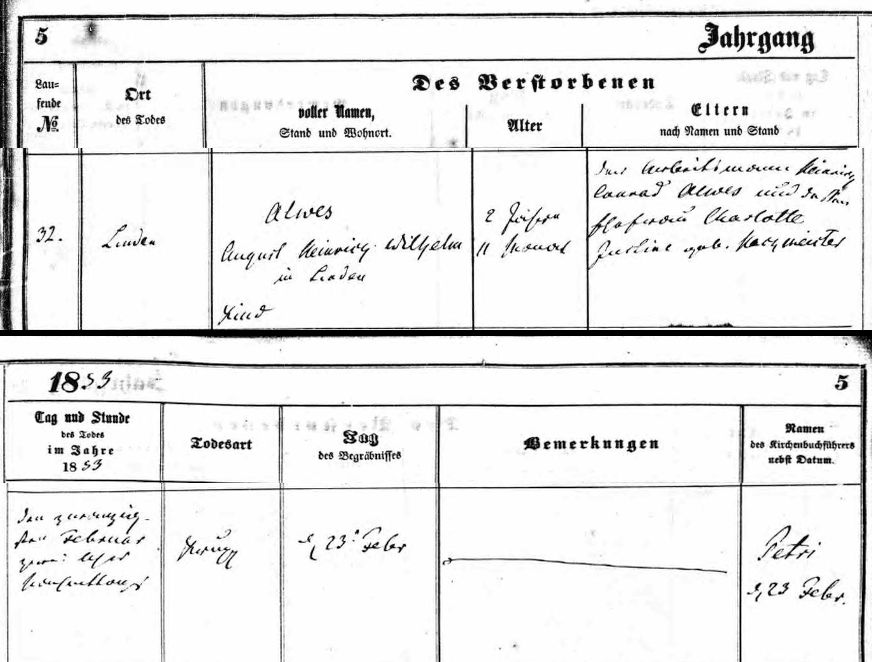 5
Jahrgang
Lau-
fende
№
Ort
des Todes
Des Verstorbenen
voller Namen,
Stand und Wohnort.
Alter
Eltern
nach Namen und Stand
32.
Linden
Alwes
August Heinrich Wilhelm
in Linden
Kind
2 Jahre
11 Monat
des Arbeitsmann Heinrich
Conrad Alwes und dessen
Ehefrau Charlotte
Justine geb.
1853
5
Tag und Stunde
des Todes
im Jahre
1853
Todesart
Tag
des Begräbnisses
Bemerkungen
Namen
des Kirchenbuchführers
nebst Datum.
den zwanzig-
sten Februar
zwei Uhr
Nachmittags
d. 23. Febr
Petri
d. 23 Febr.